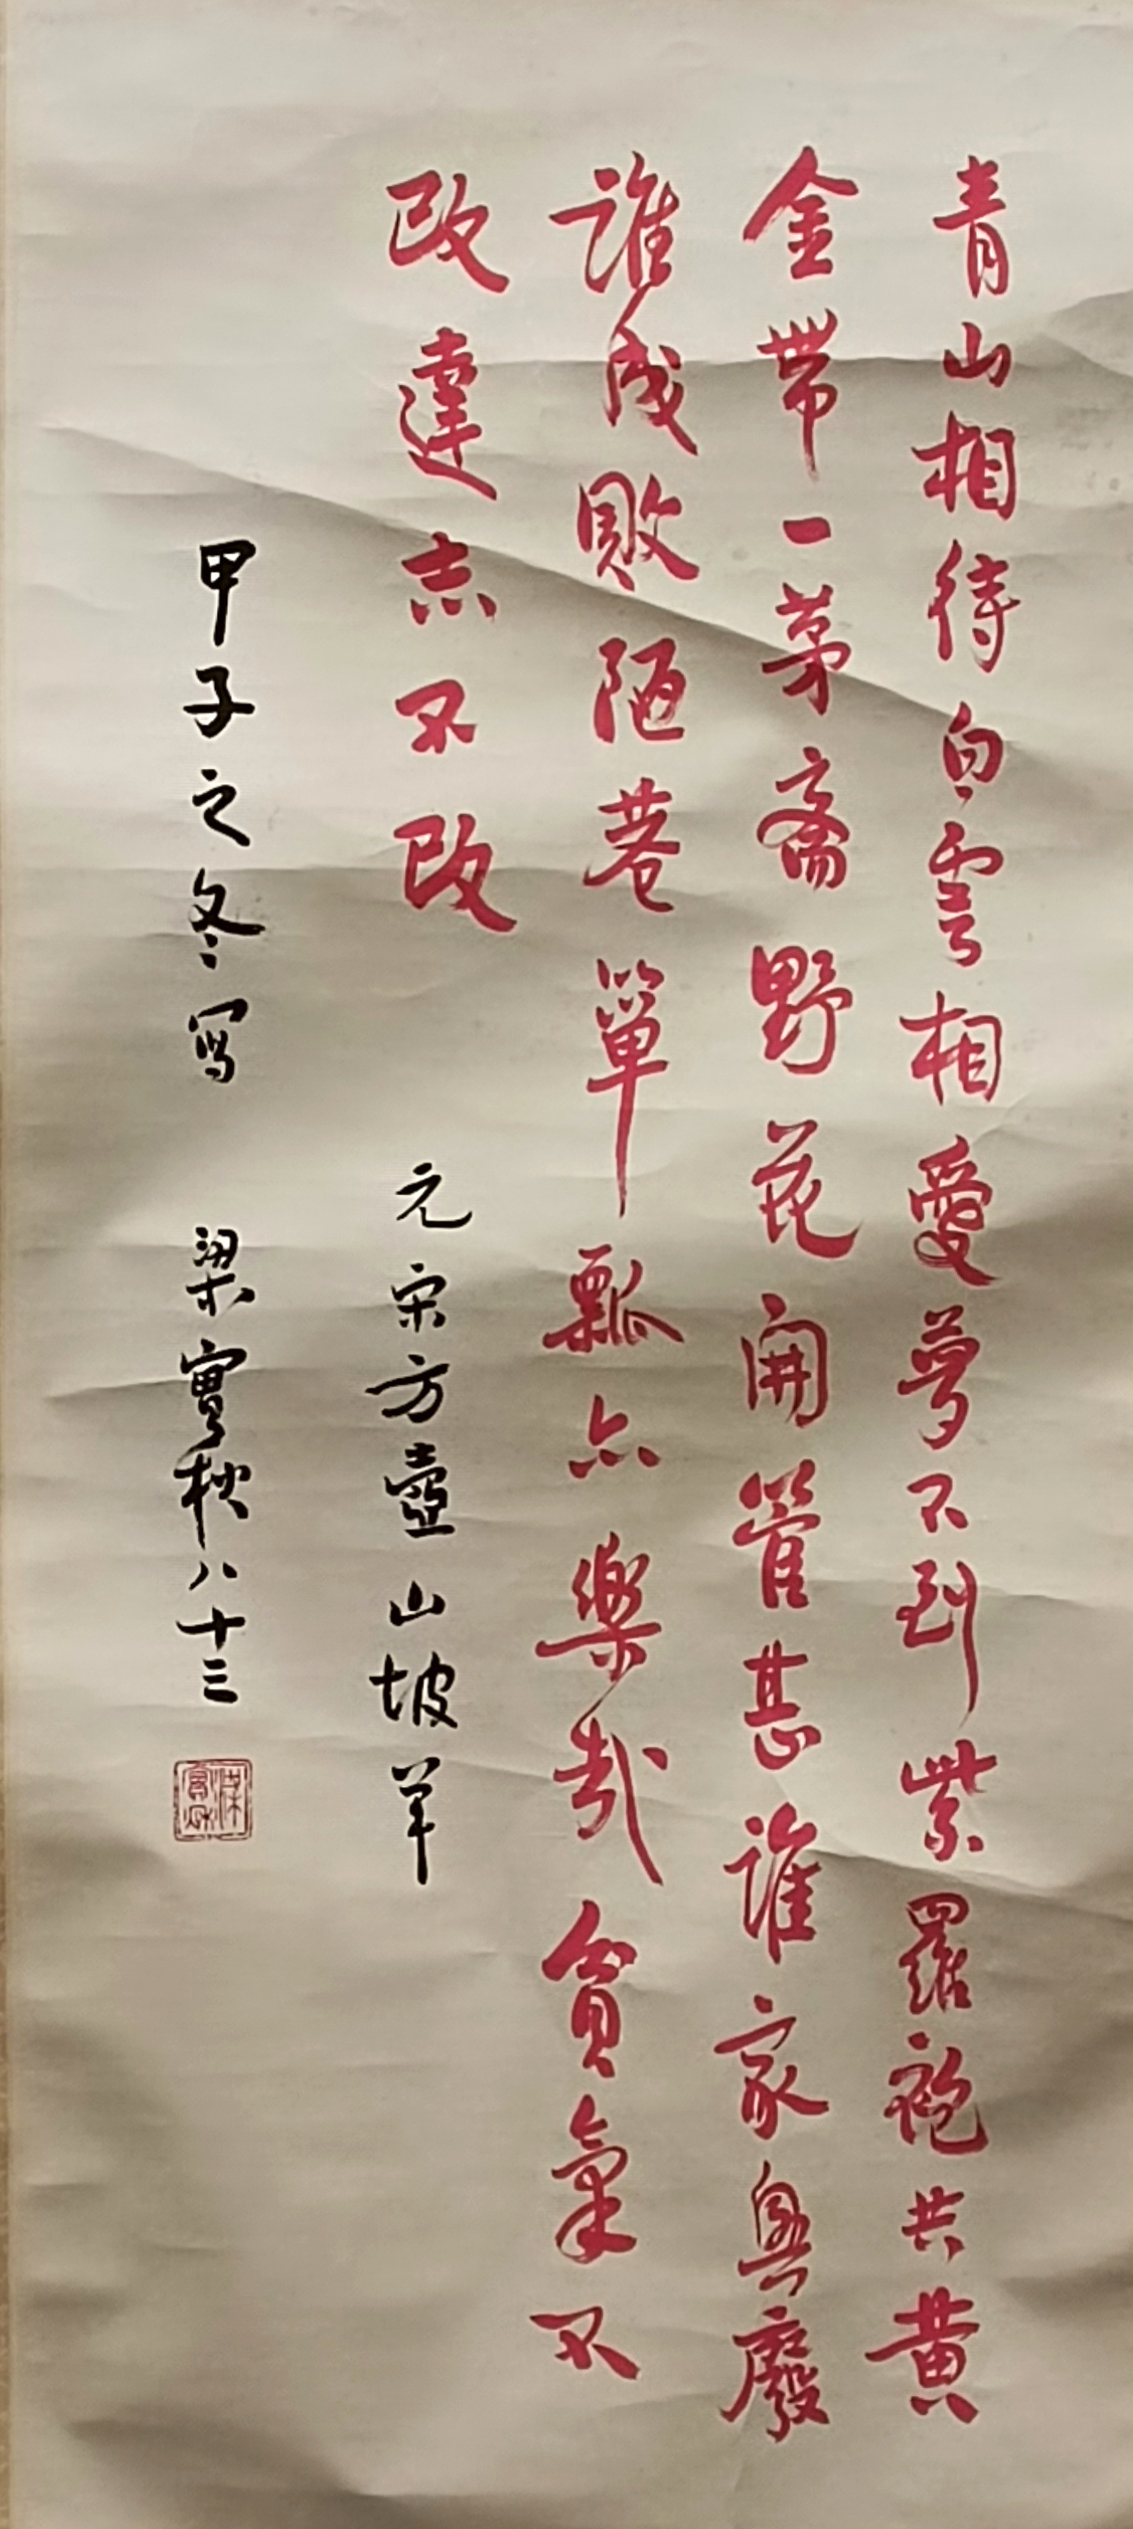 青山相待白雲相愛夢不到紫羅袍共黄
金帶一茅齋野花開管甚誰家興廢
誰成敗陋巷簞瓢亦樂哉貧氣不
改達志不改
元宋方壺山坡羊
甲子之冬寫 梁實秋八十三
梁實秋